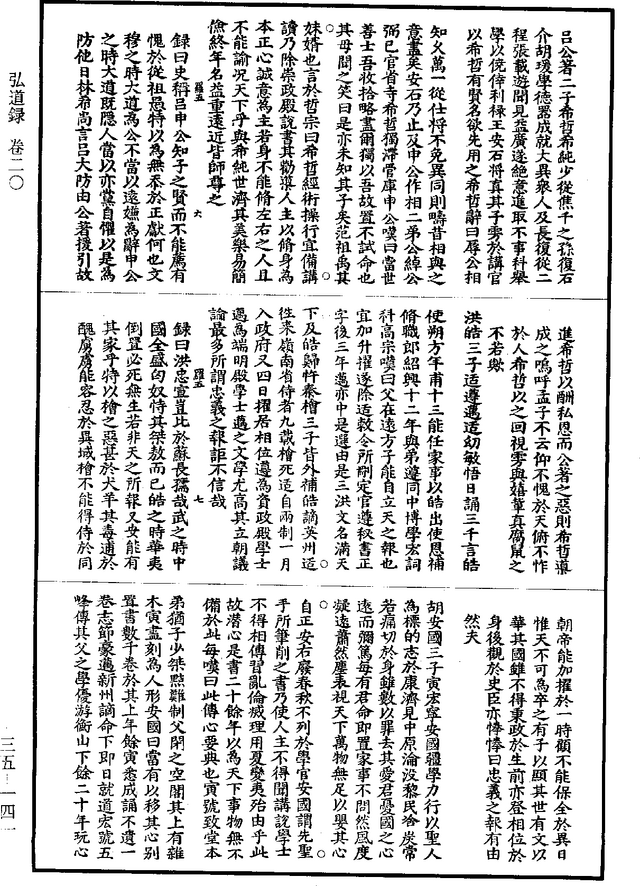 弘道錄　卷二〇
三五—一四一
呂公著二子希哲希純少從焦千之孫復石
介胡瑗學德器成就大異衆人及長復從二
程張載遊聞見益廣遂絕意進取不事科舉
學以僥倖利祿王安石將寘其子雱於講官
以希哲有賢名欲先用之希哲辭曰辱公相
知久萬一從仕將不免異同則疇昔相與之
意盡矣安石乃止及申公作相二弟公綽公
弼已官省寺希哲獨滯管庫申公嘆曰當世
善士吾收拾略盡爾獨以吾故置不試命也
其母聞之笑曰是亦未知其子矣范祖禹其
妹婿也言於哲宗曰希哲經術操行宜備講
讀乃除崇政殿說書其勸導人主以修身為
本正心誠意為主若身不能修左右之人且
不能諭况天下乎與希純世濟其美樂易簡
儉終年名益重遠近皆師尊之
錄曰史稱呂申公知子之賢而不能薦有
愧於從祖愚特以為無忝於正獻何也文
穆之時大道為公不當以遠嫌為辭申公
之時大道既隱人當以亦黨自懼以是為
防他日林希尚言呂大防由公著援引故
進希哲以酬私恩而公著之惡則希哲導
成之嗚呼孟子不云仰不愧於天俯不怍
於人希哲以之回視雱與嬉輩真腐鼠之
不若歟
洪皓三子适遵邁适幼敏悟日誦三千言皓
使朔方年甫十三能任家事以皓出使恩補
修職郎紹興十二年與弟遵同中博學宏詞
科高宗嘆曰父在遠方子能自立天之報也
宜加升擢遂除适敕令所刪定官遵秘書正
字後三年邁亦中是選由是三洪文名滿天
下及皓歸忤秦檜三子皆外補皓謫英州适
往來嶺南省侍者九載檜死适自兩制一月
入政府又四日擢居相位遵為資政殿學士
邁為端明殿學士邁之文學尤高其立朝議
論最多所謂忠義之報詎不信哉
錄曰洪忠宣豈比於蘇長孺哉武之時中
國全盛匈奴恃其桀驁而已皓之時華夷
倒置必死無生若非天之所報又安能有
其家乎特以檜之惡甚於犬羊其毒過於
醜虜虜能容忍於異域檜不能得侍於同
朝帝能加擢於一時顧不能保全於異日
惟天不可為卒之有子以顯其世有文以
華其國雖不得東政於生前亦登相位於
身後觀於史臣亦悻悻曰忠義之報有由
然夫
胡安國三子寅宏寧安國彊學力行以聖人
為標的志於康濟見中原淪沒黎民塗炭常
若痛切於身雖數以罪去其愛君憂國之心
遠而彌篤每有君命即置家事不問然風度
凝遠蕭然塵表視天下萬物無足以嬰其心
自正安石廢春秋不列於學官安國謂先聖
手所筆削之書乃使人主不得聞講說學士
不得相傳習亂倫滅理用夏變夷殆由乎此
故潛心是書二十餘年以為天下事物無不
備於此每嘆曰此傳心要典也寅號致堂本
弟猶子少桀黠難制父閉之空閣其上有雜
木寅盡刻為人形安國曰當有以移其心別
置書數千卷於其上年餘寅悉成誦不遺一
卷志節豪邁新州謫命下即日就道宏號五
峰傳其父之學優游衡山下餘二十年玩心